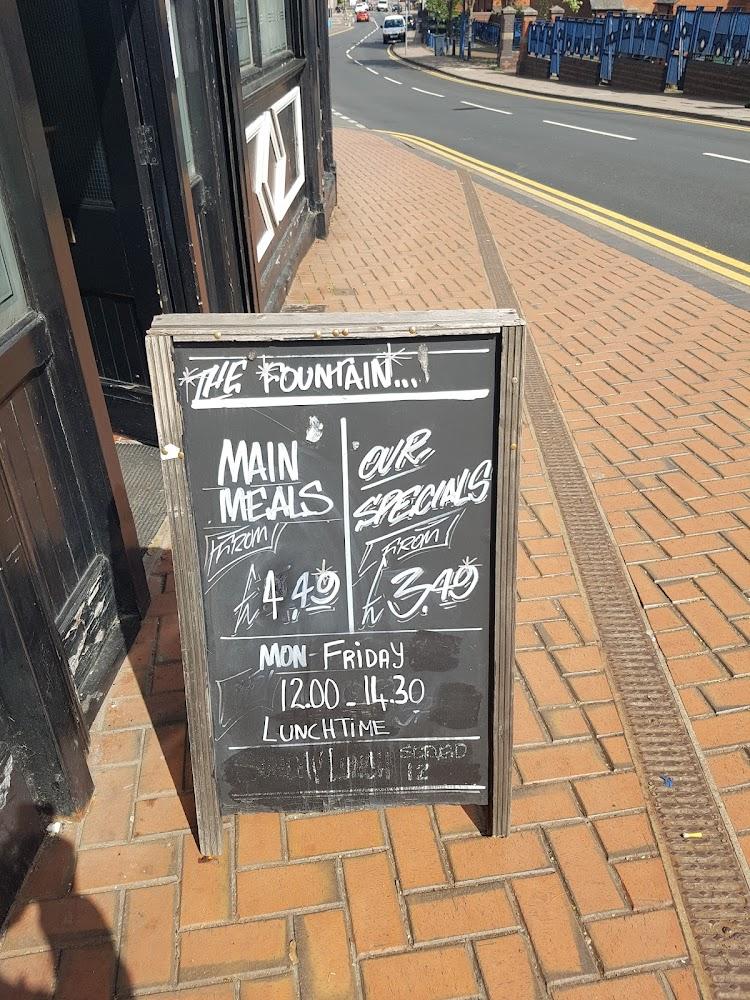 THE FOUNTAIN...
MAIN
MEALS
FROM
£4.49
OUR
SPECIALS
FROM
£3.49
MON-FRIDAY
12.00-14.30
LUNCHTIME
SUNDAY LUNCH SERVED
12